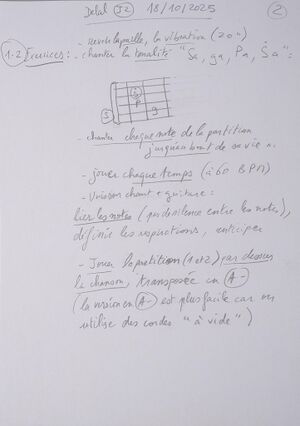 Delal J2 18/10/2025 2
- Revoir la paille, la vibration (20")
1.2 Exercices: - chanter la tonalité "Sa, ga, Pa, Sa":
G
P
5 g
- chanter chaque note de la partition
jusqu'au bout de sa vie".
- jouer chaque temps (à 60 BPM)
- Unisson chant + guitare:
lier les notes (pas de silence entre les notes),
définir les respirations, anticiper
- Jouer la partition (1 et 2) par dessus
la chanson, transposée en A-
(la version en A- est plus facile car on
utilise des cordes "à vide")